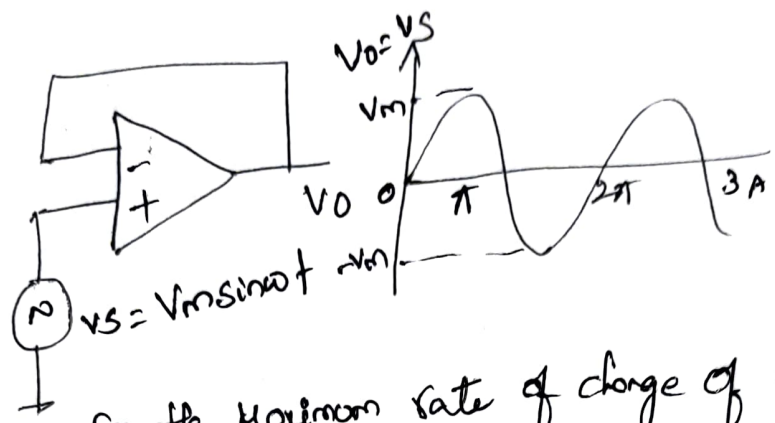 Vo = VS
Vm
-
+
VO
0
π
2π
3π
-Vm
~
VS = Vm sin ωt
the Maximum rate of change of